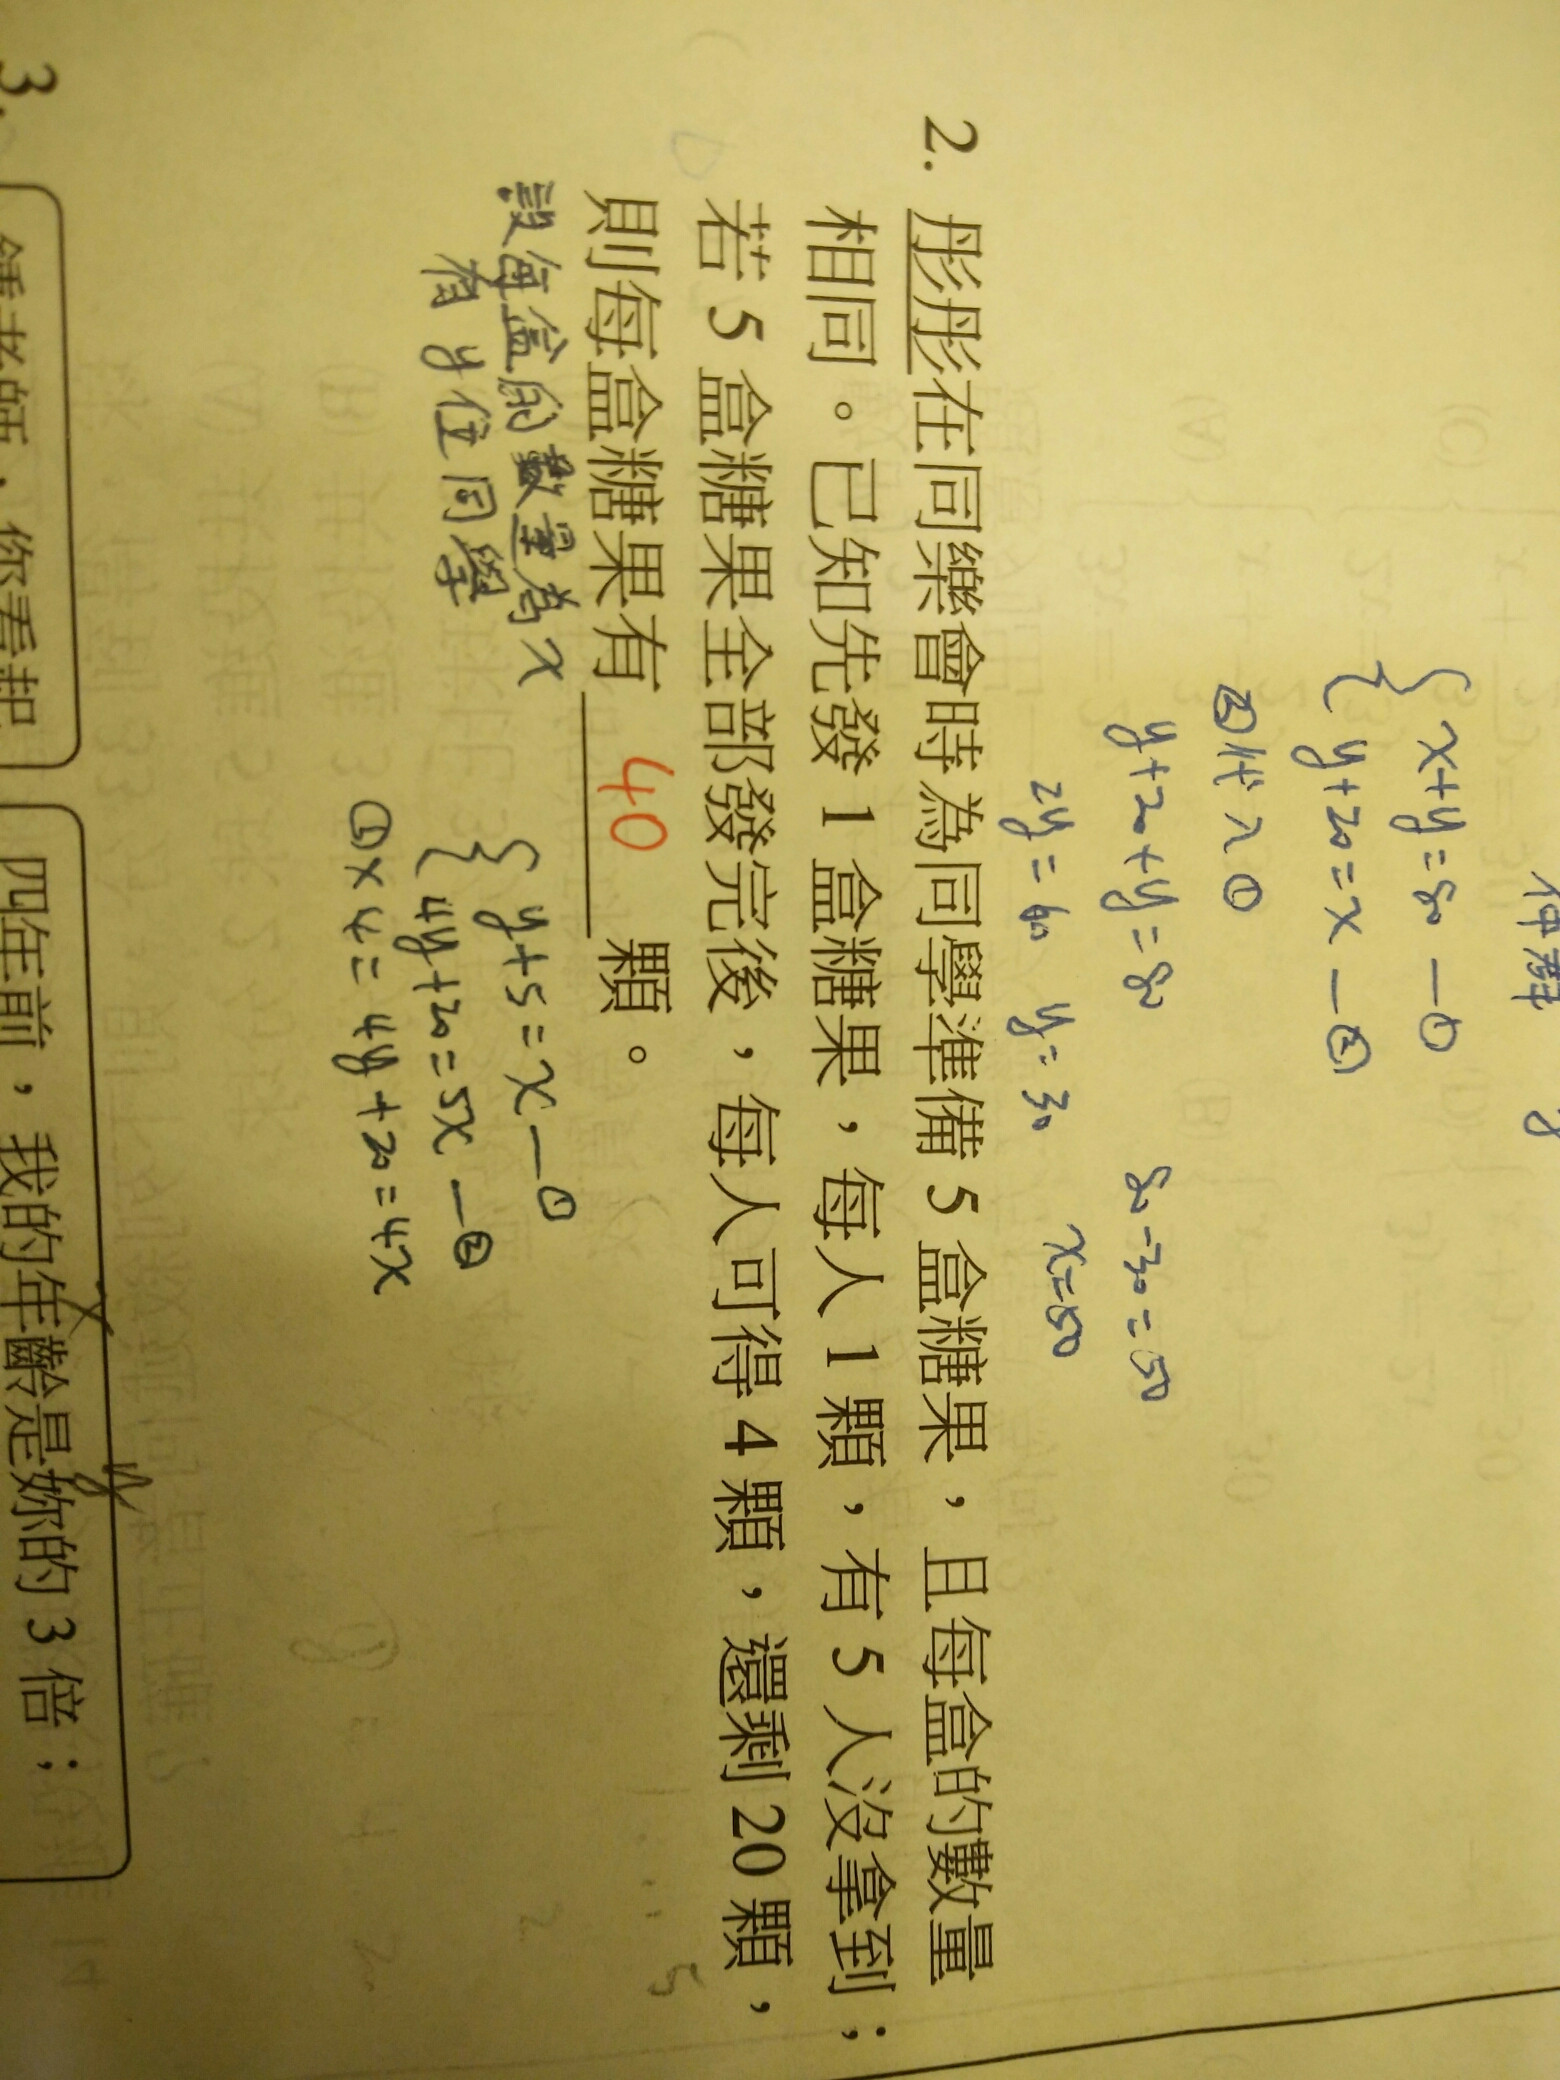 x+y=80 —①
y+20=x —②
②代入①
y+20+y=80
80-30=50
2y=60 y=30
x=50
2. 彤彤在同樂會時為同學準備 5 盒糖果，且每盒的數量
相同。已知先發 1 盒糖果，每人 1 顆，有 5 人沒拿到；
若 5 盒糖果全部發完後，每人可得 4 顆，還剩 20 顆，
則每盒糖果有 40 顆。
設每盒的數量為x
有y位同學
y+5=x —①
4y+20=5x —②
①×4=4y+20=4x
3.
你看起
四年前，我的年齡是妳的 3 倍；
x
y